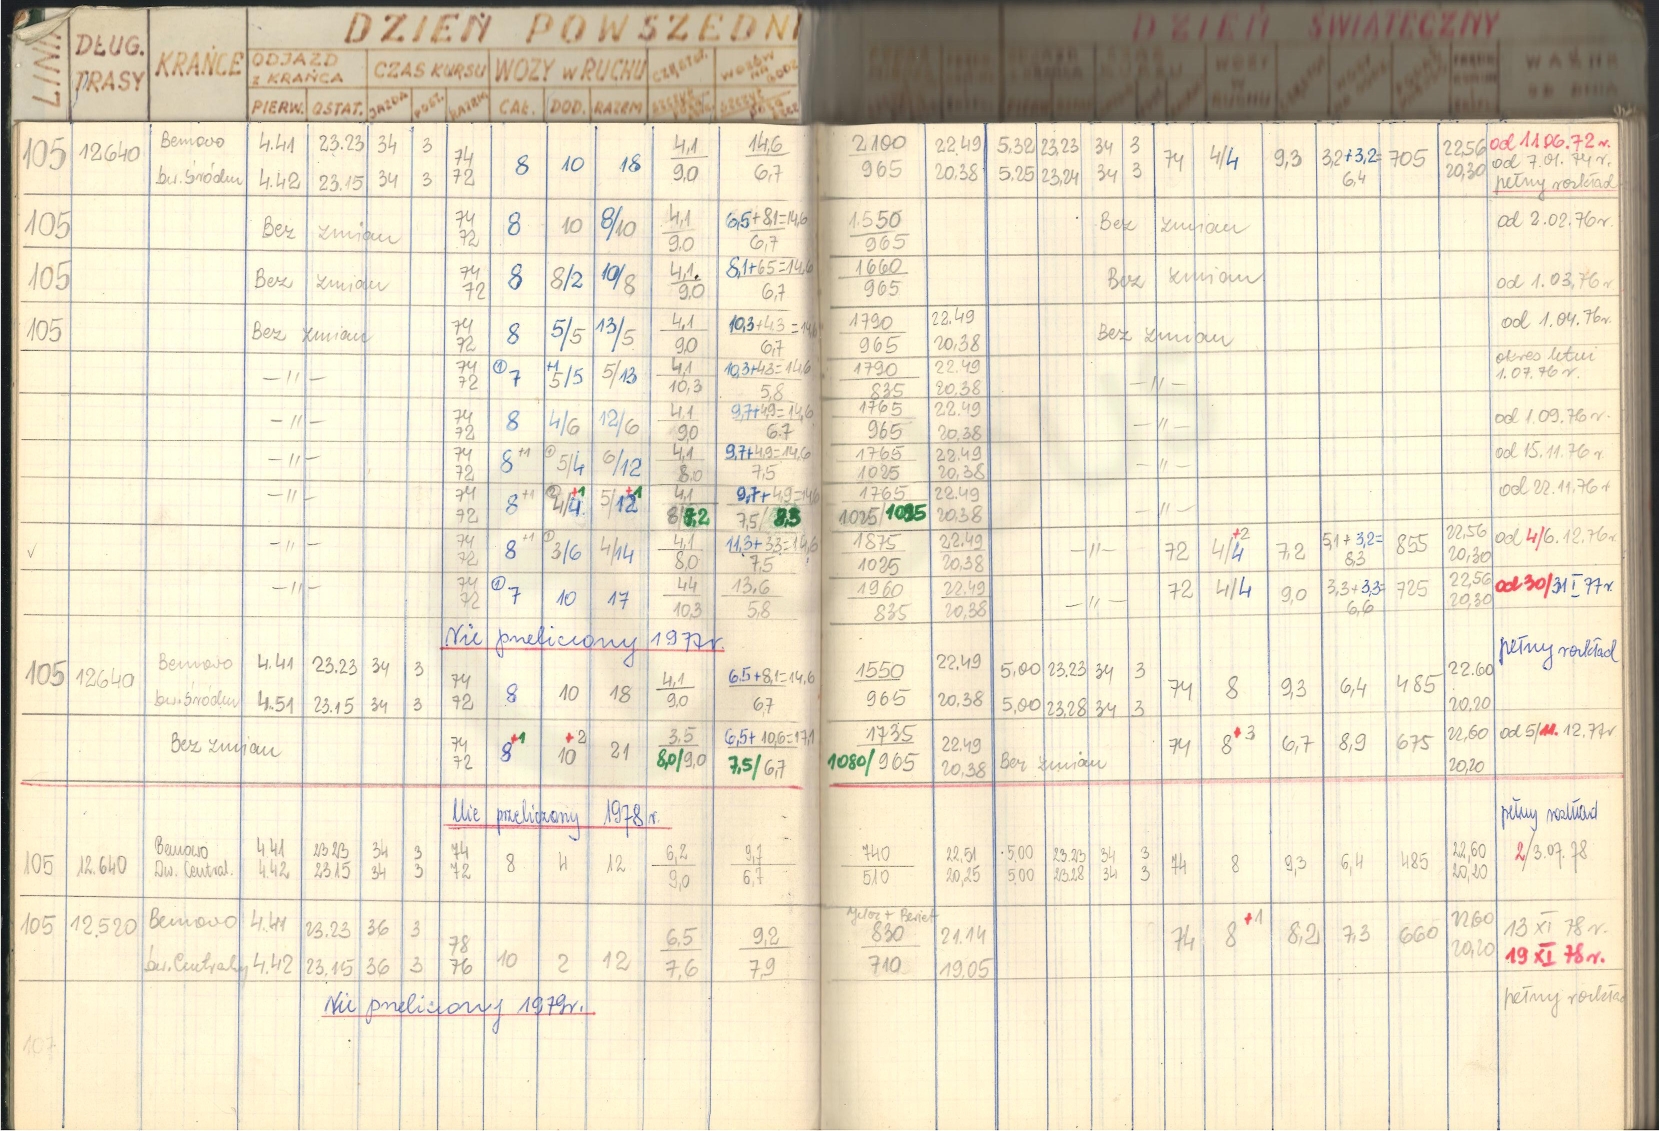 DZIEŃ POWSZEDNI
DZIEŃ ŚWIĄTECZNY
LINIA DŁUG. TRASY KRAŃCE ODJAZD Z KRAŃCA CZAS KURSU WOZY W RUCHU
PIERW. OSTAT. JAZDA POST. RAZEM CAŁ. DOD. RAZEM
105 12640 Bemowo 4.41 23.23 34 3 74 8 10 18 4,1 14,6 2100 22.49 5.32 23,23 34 3 74 4/4 9,3 3,2+3,2= 705 22,56 od 11.06.72 r.
Dw. Śródm 4.42 23.15 34 3 72 9,0 6,7 965 20,38 5.25 23,24 34 3 6,4 20,30 od 7.01.74 r.
pełny rozkład
105 Bez zmian 74 8 10 8/10 4,1 6,5+8,1=14,6 1550 Bez zmian od 2.02.76r.
72 9,0 6,7 965
105 Bez zmian 74 8 8/2 10/8 4,1 8,1+6,5=14,6 1660 Bez zmian od 1.03.76r
72 9,0 6,7 965
105 Bez zmian 74 8 5/5 13/5 4,1 10,3+4,3=14,6 1790 22.49 Bez zmian od 1.04.76r.
72 9,0 6,7 965 20,38
—"— 74 ① 7 +1 5/5 5/13 4,1 10,3+4,3=14,6 1790 22.49 —"— okres letni
72 10,3 5,8 835 20,38 1.07.76 r.
—"— 74 8 4/6 12/6 4,1 9,7+4,9=14,6 1765 22.49 —"— od 1.09.76 r.
72 9,0 6.7 965 20,38
—"— 74 8 +1 ① 5/4 6/12 4,1 9,7+4,9=14,6 1765 22.49 —"— od 15.11.76 r
72 8,0 7,5 1025 20,38
—"— 74 8 +1 ② 4/4 +1 5/12 +1 4,1 9,7+4,9=14,6 1765 22.49 —"— od 22.11.76 r
72 8/7,2 7,5/8,3 1025/1095 20,38
—"— 74 8 +1 ① 3/6 4/14 4,1 11,3+3,3=14,6 1875 22.49 —"— 72 4/4 +2 7,2 5,1+3,2= 855 22,56 od 4/6.12.76r
72 8,0 7,5 1025 20,38 8,3 20,30
—"— 74 ① 7 10 17 44 13.6 1960 22.49 —"— 72 4/4 9,0 3,3+3,3= 725 22,56 od 30/31 I 77 r.
72 10,3 5,8 835 20,38 6,6 20,30
Nie przeliczony 1977r. pełny rozkład
105 12640 Bemowo 4.41 23.23 34 3 74 8 10 18 4,1 6.5+8,1=14,6 1550 22.49 5,00 23,23 34 3 74 8 9,3 6,4 485 22.60
Dw. Śródm 4.51 23.15 34 3 72 9,0 6,7 965 20,38 5,00 23,28 34 3 20,20
Bez zmian 74 8 +1 10 +2 21 3.5 6,5+10,6=17,1 1735 22.49 Bez zmian 74 8 +3 6,7 8,9 675 22,60 od 5/11.12.77r
72 8,0/9,0 7,5/6,7 1080/965 20,38 20,20
Nie przeliczony 1978 r. pełny rozkład
105 12.640 Bemowo 4.41 23.23 34 3 74 8 4 12 6,2 9,7 740 22,51 5,00 23.23 34 3 74 8 9,3 6,4 485 22,60 2/3.07.78
Dw. Central. 4.42 23.15 34 3 72 9,0 6,7 510 20,25 5,00 23.28 34 3 20,20
105 12.520 Bemowo 4.41 23.23 36 3 78 10 2 12 6,5 9,2 Jelcz + Berliet 830 21.14 74 8 +1 8,2 7,3 660 22,60 13 XI 78 r.
Dw. Centralny 4.42 23,15 36 3 76 7,6 7,9 710 19.05 20,20 19 XI 78 r.
Nie przeliczony 1979r. pełny rozkład
107